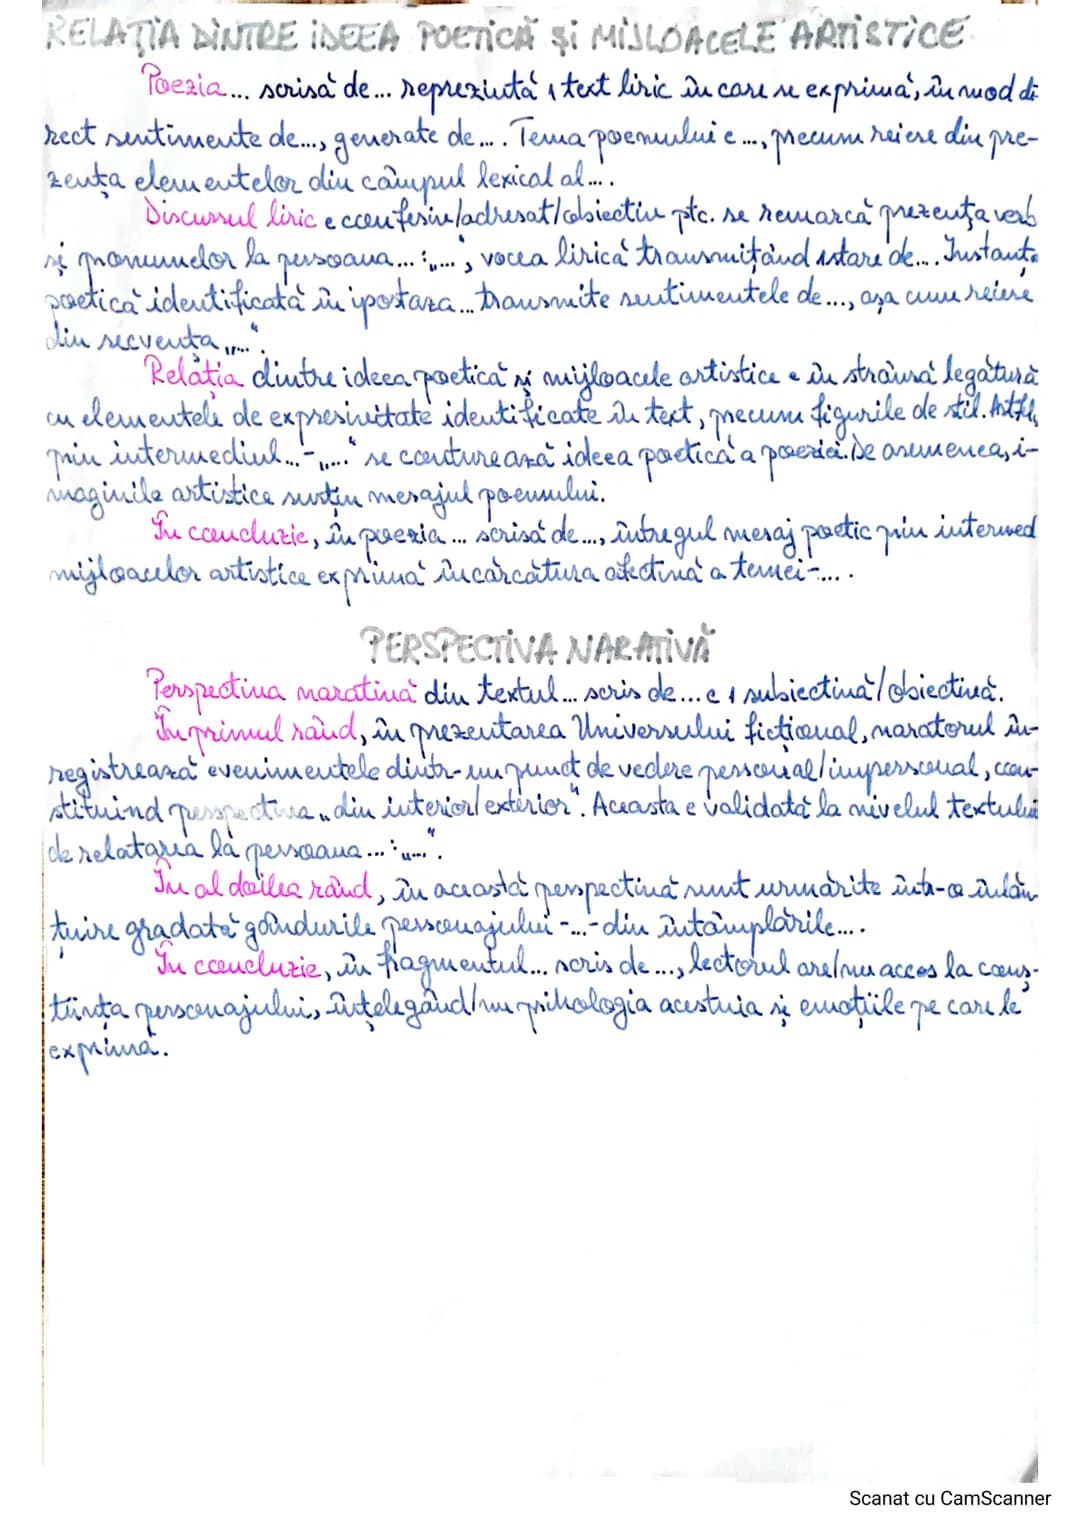 RELAȚIA DINTRE IDEEA POETICĂ ȘI MIJLOACELE ARTISTICE
Poezia... scrisă de... reprezintă 1 text liric în care se exprimă, în mod di-
rect sentimente de..., generate de... . Tema poemului e ..., precum reiese din pre-
zența elementelor din câmpul lexical al... .
Discursul liric e confesiv/adresat/obiectiv ptc. se remarcă prezența verb
și pronumelor la persoana... : „...”, vocea lirică transmițând 1 stare de... . Instanța
poetică identificată în ipostaza... transmite sentimentele de..., așa cum reiese
din secvența „...”.
Relația dintre ideea poetică și mijloacele artistice e în strânsă legătură
cu elementele de expresivitate identificate în text, precum figurile de stil. Astfel,
prin intermediul... - „...” se conturează ideea poetică a poeziei. De asemenea, i-
maginile artistice susțin mesajul poemului.
În concluzie, în poezia ... scrisă de ..., întregul mesaj poetic prin intermed
mijloacelor artistice exprimă încărcătura afectivă a temei - ... .
PERSPECTIVA NARATIVĂ
Perspectiva narativă din textul... scris de... e 1 subiectivă/obiectivă.
În primul rând, în prezentarea Universului ficțional, naratorul în-
registrează evenimentele dintr-un punct de vedere personal/impersonal, con-
stituind perspectiva „din interior/exterior". Aceasta e validată la nivelul textului
de relatarea la persoana... : „...”.
În al doilea rând, în această perspectivă sunt urmărite într-o înlăn-
țuire gradată gândurile personajului -...- din întâmplările... .
În concluzie, în fragmentul... scris de ..., lectorul are/nu acces la conș-
tiința personajului, înțelegând/nu psihologia acestuia și emoțiile pe care le
exprimă.
Scanat cu CamScanner